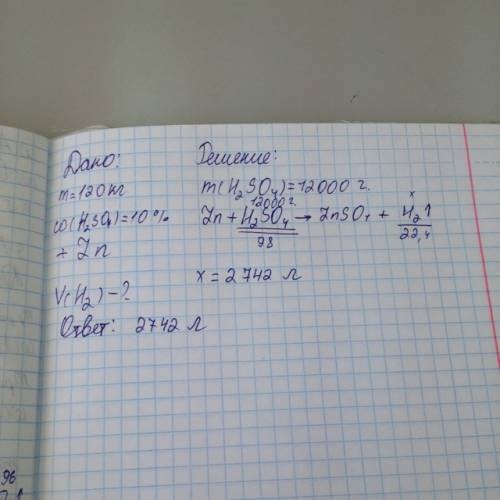 Дано:
m=120кг
ω(H₂SO₄)=10%
+ Zn
V(H₂)-?
Ответ: 2742 л
Решение:
m(H₂SO₄)=12000 г.
12000г. x
Zn + H₂SO₄ → ZnSO₄ + H₂↑
98 22,4
x = 2742 л
96